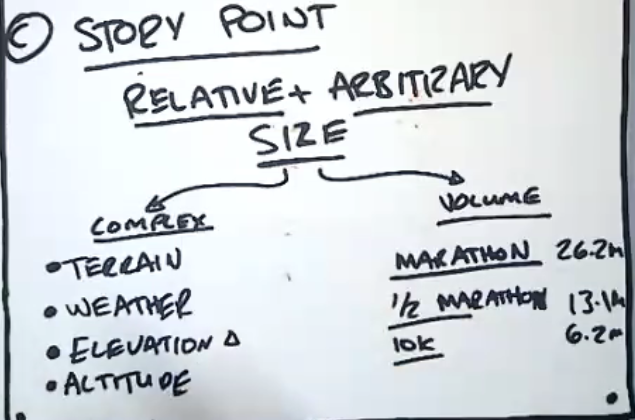 © STORY POINT
RELATIVE + ARBITRARY
SIZE
COMPLEX
• TERRAIN
• WEATHER
• ELEVATION Δ
• ALTITUDE
VOLUME
MARATHON 26.2m
1/2 MARATHON 13.1m
10K 6.2m